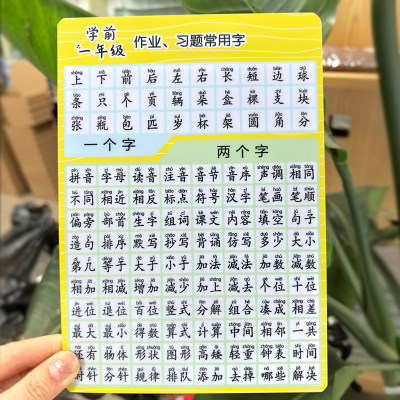 学前
一年级
作业、习题常用字
上 下 前 后 左 右 长 短 边 球
条 只 个 页 辆 朵 盒 棵 支 块
张 瓶 包 匹 岁 杯 架 圆 角 分
一个字 两个字
拼音 字母 读音 注音 音节 音序 声调 相同
不同 相近 相反 标点 符号 汉字 笔画 笔顺
偏旁 部首 生字 组词 课文 内容 填空 句子
造句 排序 默写 抄写 背诵 仿写 多少 大小
第几 等于 大于 小于 加法 减法 加数 减数
相加 相减 增加 减少 加上 减去 个位 十位
进位 退位 百位 竖式 分解 组合 凑成 相差
最大 最小 得数 算式 计算 中间 相邻 一共
还有 物体 形状 图形 高矮 轻重 钟表 时间
时针 分针 规律 排队 添加 去掉 哪些 解决